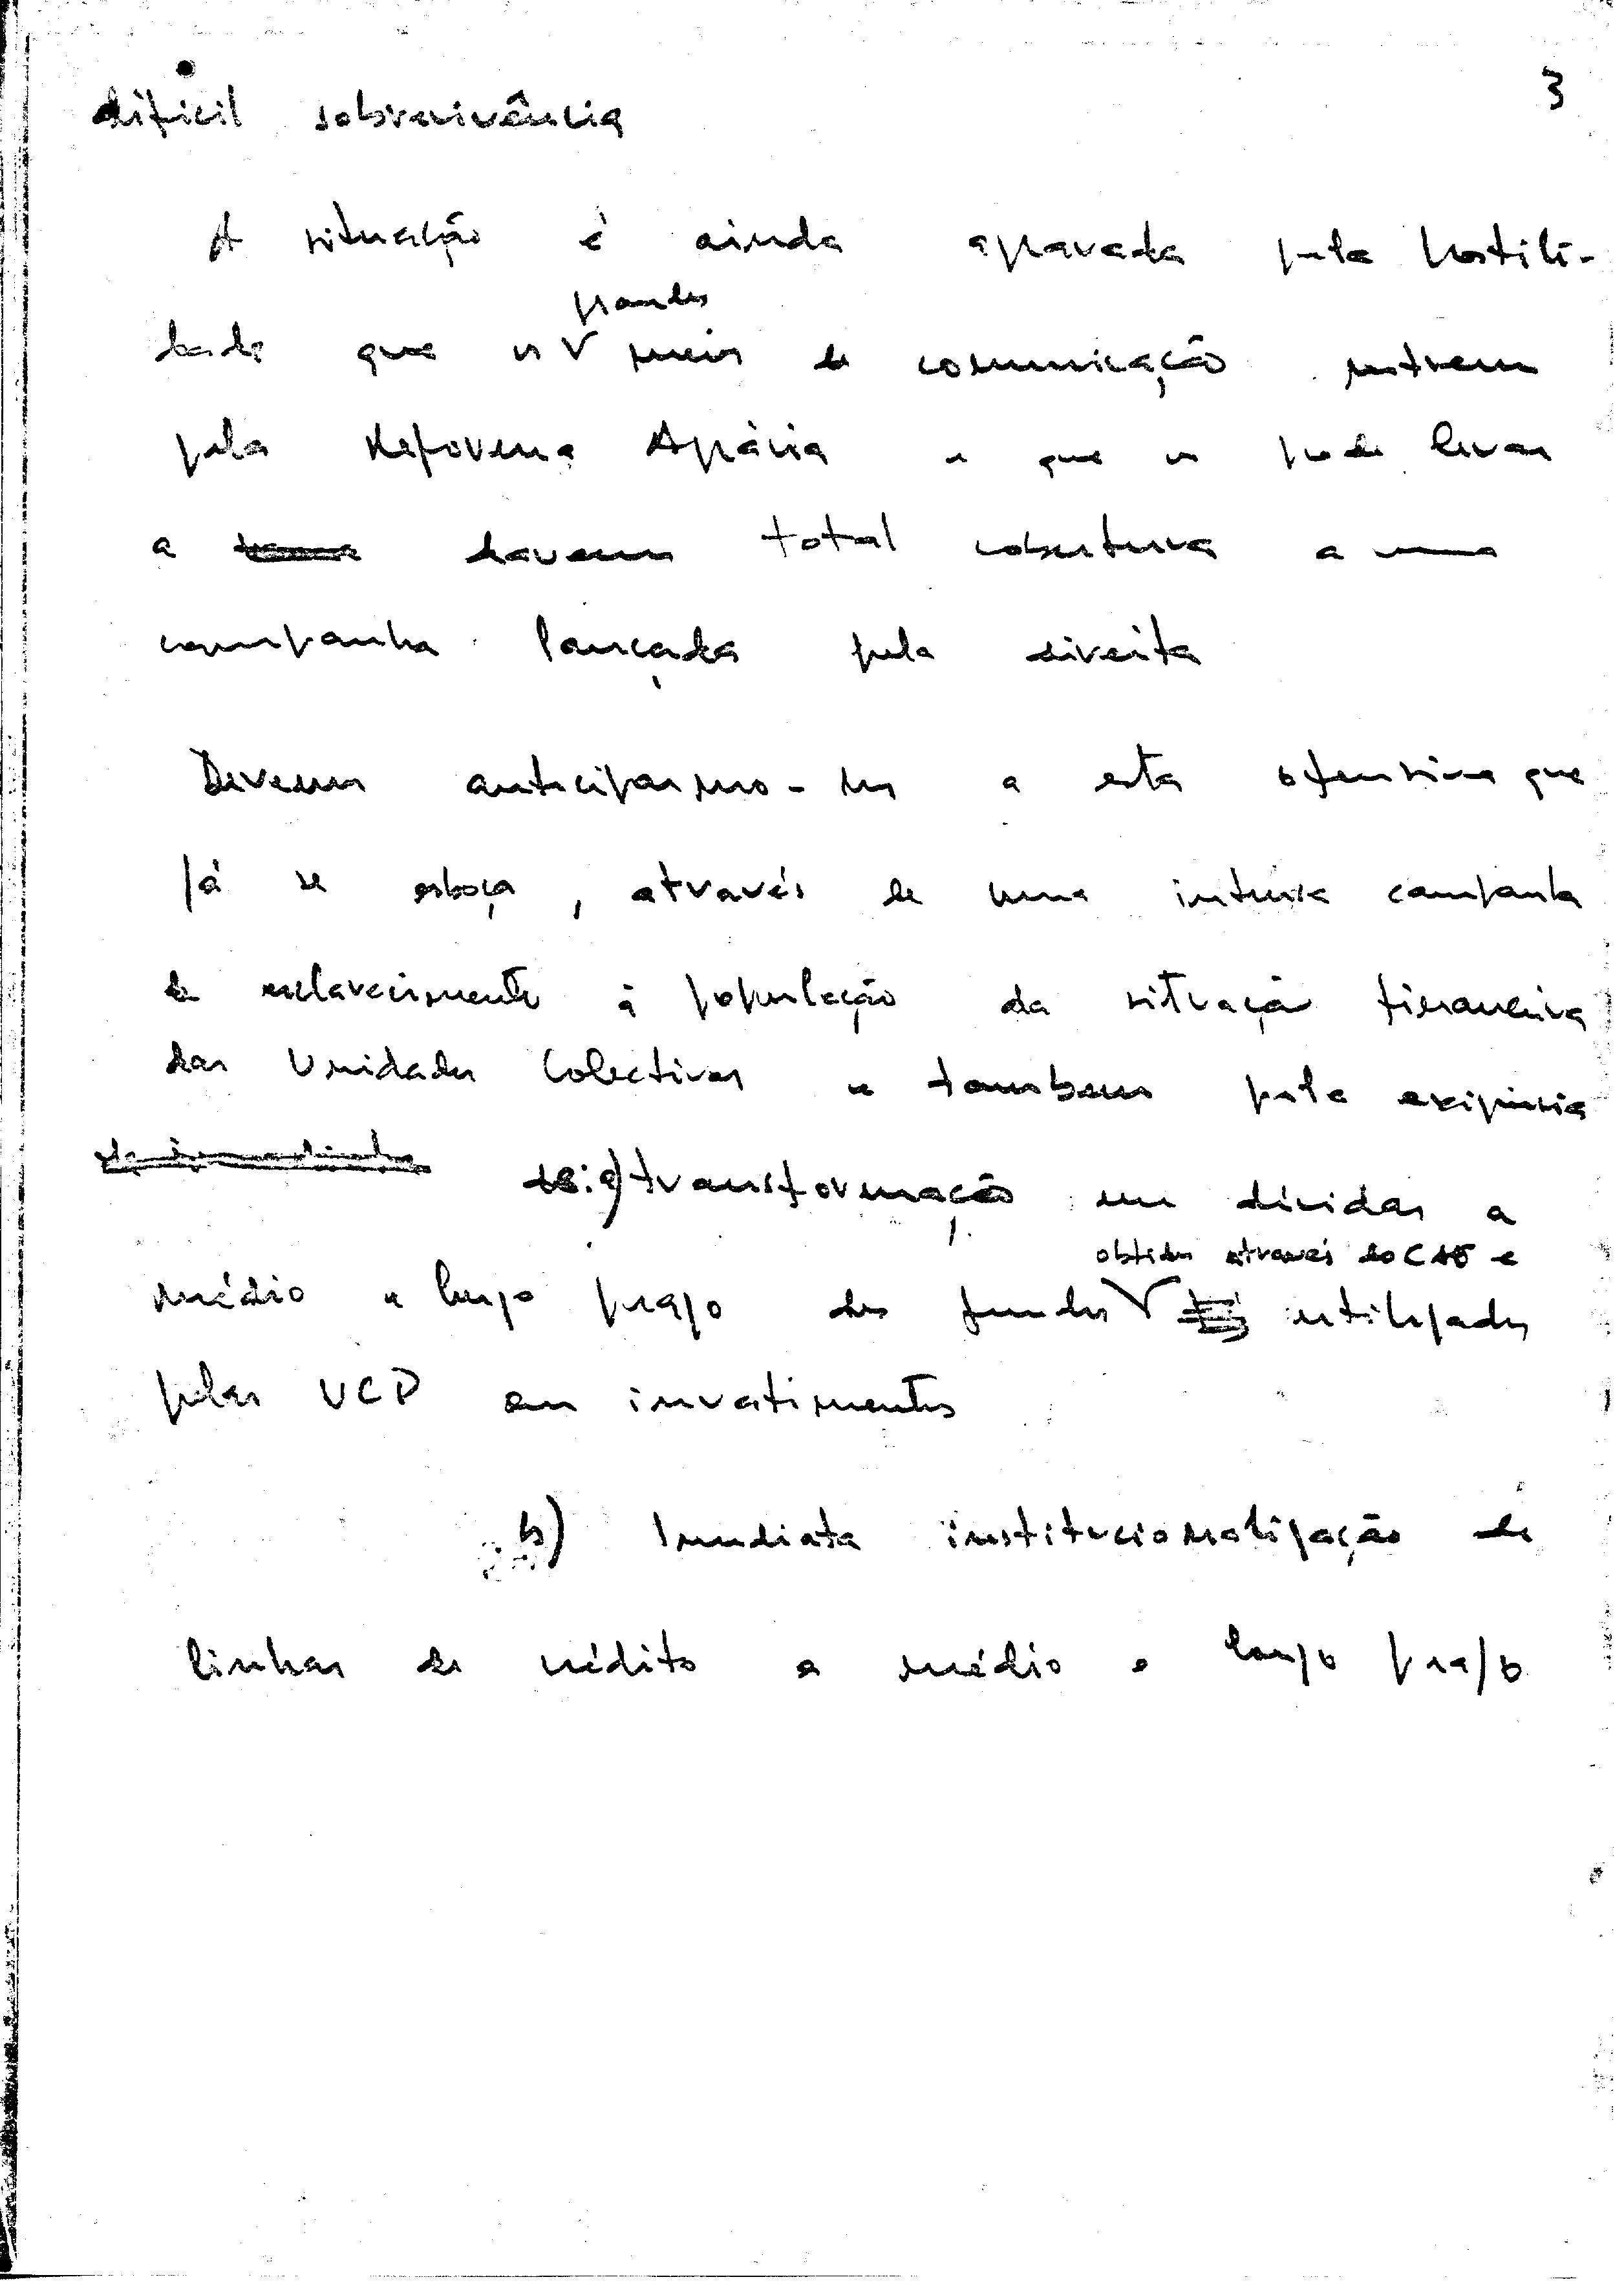 3
dificil sobrevivência
A situação é ainda agravada pela hostili-
dade que os grandes meios de comunicação nutrem
pela Reforma Agrária e que os pode levar
a darem total cobertura a uma
campanha lançada pela direita
Devemos anteciparmo-nos a esta ofensiva que
já se esboça, através de uma intensa campanha
de esclarecimento à população da situação financeira
das Unidades Colectivas e tambem pela exigência
de imediata de: a) transformação em dívidas a
médio e longo prazo dos fundos obtidos através do CAE e utilizados
pelas UCP em investimentos
b) Imediata institucionalização de
linhas de crédito a médio e longo prazo